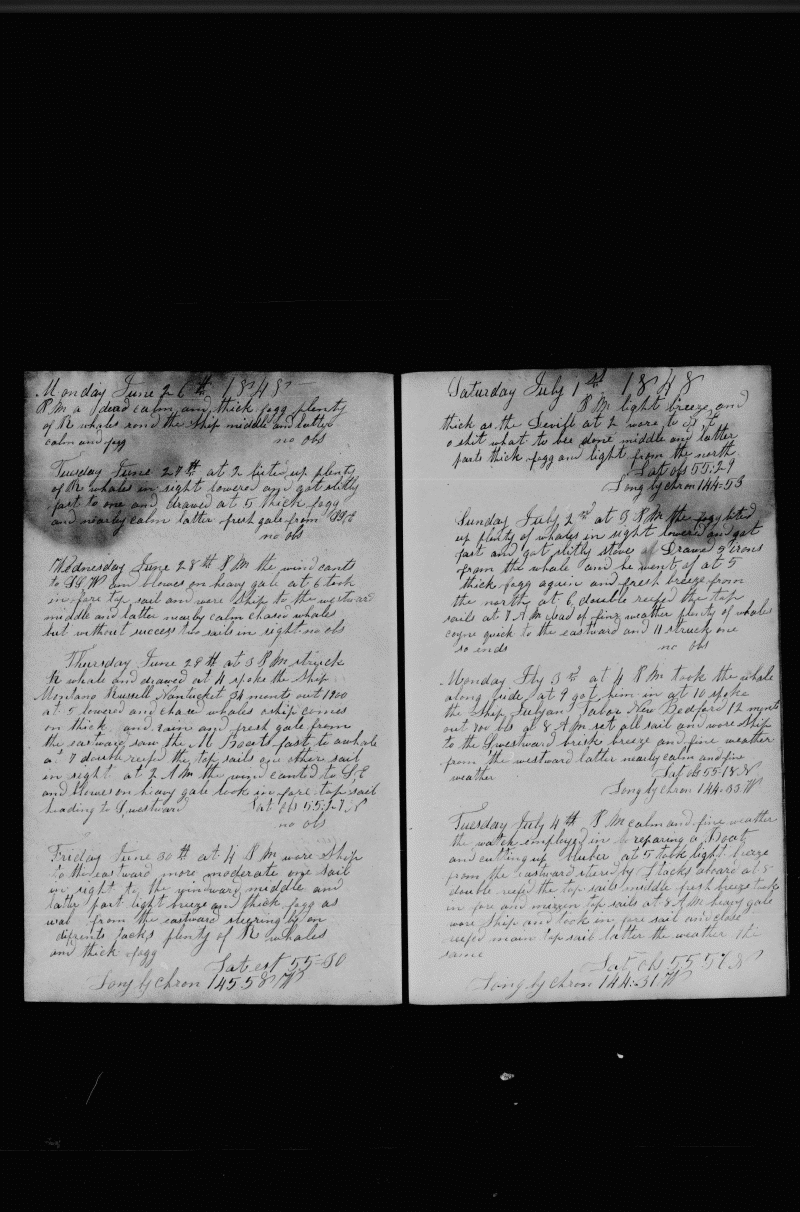 Monday June 26th 1848
P.M. a dead calm and thick fogg plenty
of R whales rond the Ship middle and latter
calm and fogg no obs
Tuesday June 27th at 2 lifts up plenty
of R whales in sight lowered and got slitly
fast to one and drawed at 5 thick fogg
and nearly calm latter fresh gale from
no obs
Wednesday June 28th P M the wind cants
to W and blowes on heavy gale at 6 took
in fore top sail and wore Ship to the westward
middle and latter nearly calm chased whales
but without success two sails in sight no obs
Thursday June 29th at 3 P M struck
R whale and drawed at 4 spoke the Ship
Montano Russell Nantucket 34 months out 1900
at 5 lowered and chased whales a ship comes
on thick and rain and fresh gale from
the eastward saw the M Boats fast to a whale
at 7 double reefed the top sails one other sail
in sight at 2 A M the wind canted to S.E
and blowes on heavy gale took in fore top sail
heading to S westward Lat obs 55:27 N
no obs
Friday June 30th at 4 P M wore Ship
to the eastward more moderate one sail
in sight to the windward middle and
latter part light breeze and thick fogg as
wool from the eastward steering by on
difrents Tacks plenty of R whales
and thick fogg
Lat est 55=30
Long by chron 145.58 W
Saturday July 1st 1848
P M light breeze and
thick as the Devill at 2 wore to
a shit what to bee done middle and latter
parts thick fogg and light from the north
Lat obs 55:29
Long by chron 144-53
Sunday July 2nd at 3 P M the fogg lited
up plenty of whales in sight lowered and got
fast and got slitly stove Drawd 5 irons
from the whale and he went of at 5
thick fogg again and fresh breeze from
the north at 6 double reefed the top
sails at 7 A M dead of finz weather plenty of whales
goyne quick to the eastward and 11 struck one
so ends no obs
Monday 3d at 4 P M took the whale
along side at 9 got him in at 10 spoke
the Ship Julyan Tabor New Bedford 12 monts
out 700 bbls at 8 A M set all sail and wore Ship
to the S westward brisk breeze and fine weather
from the westward latter nearly calm and fine
weather Lat obs 55-18 N
Long by chron 144-33 W
Tuesday July 4th P M calm and fine weather
the watch employed in repareing a Boat
and cutting up bluber at 5 took light breeze
from the eastward stered by Tacks aboard at 5
double reefed the top sails middle fresh breeze took
in fore and mizzen top sails at 8 A M heavy gale
wore Ship and took in fore sail and close
reefed main top sail latter the weather the
same
Lat obs 55 57 N
Long by chron 144:31 W